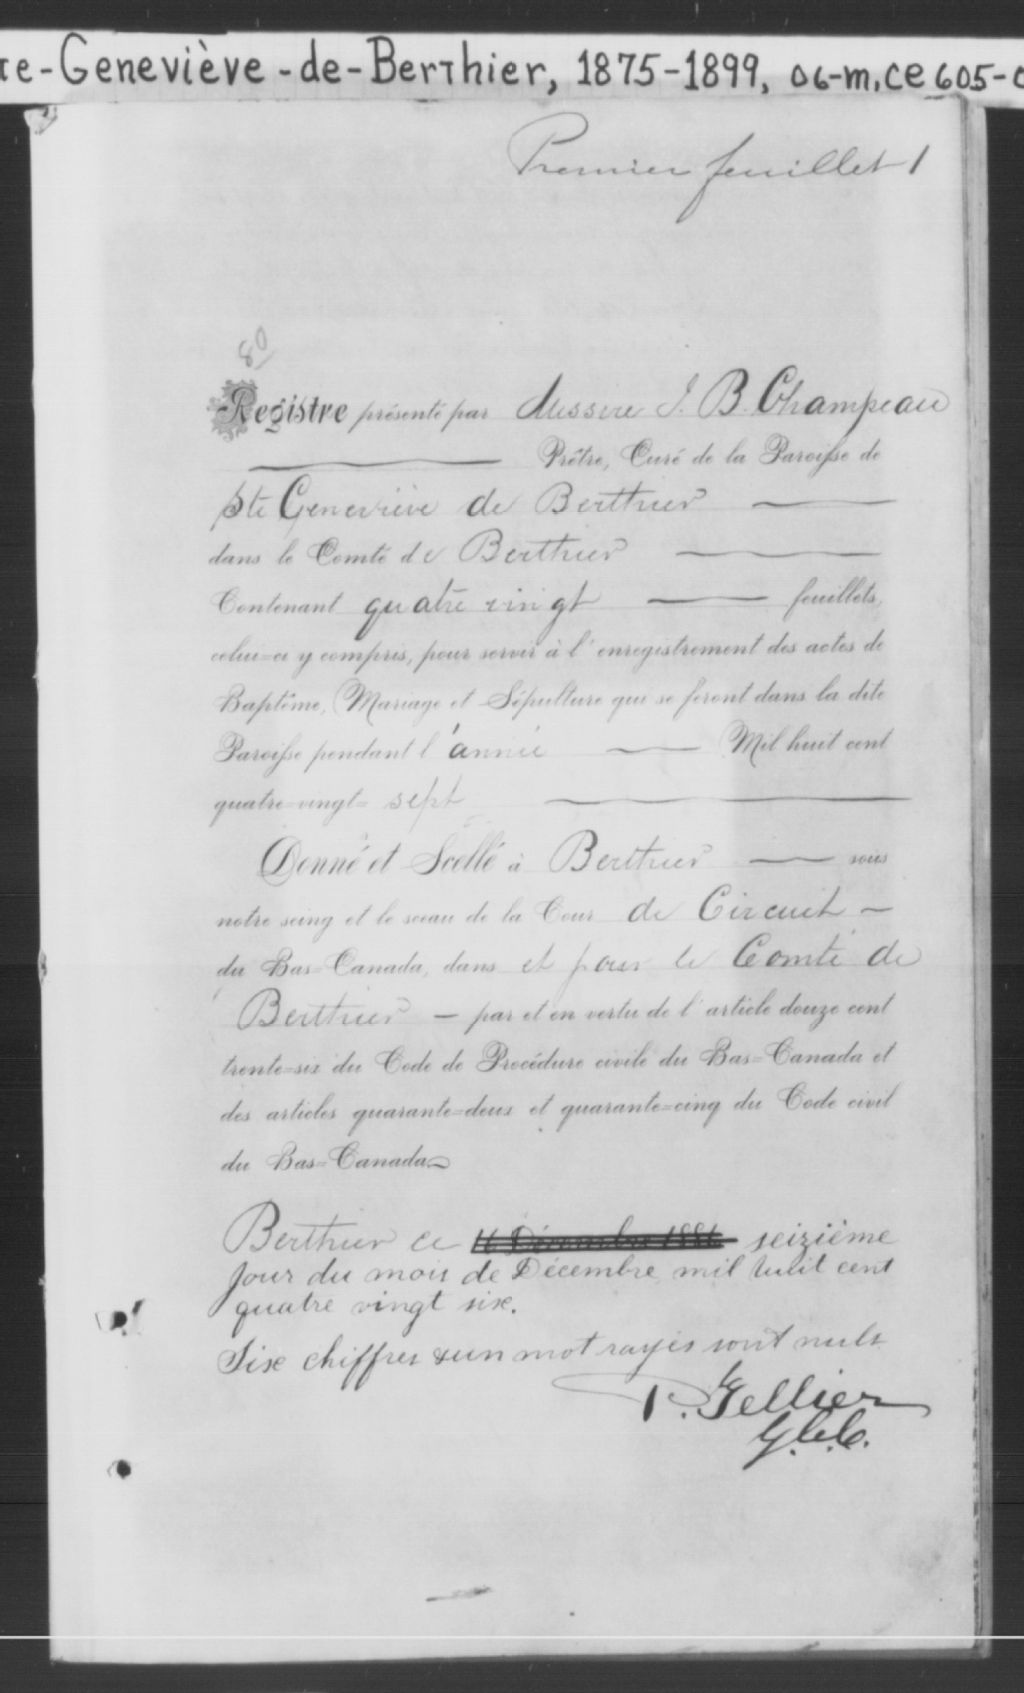 te-Geneviève-de-Berthier, 1875-1899, 06-m, ce 605-
Premier feuillet 1
80
Registre présenté par Messire J. B. Champeau
Prêtre, Curé de la Paroisse de
Ste Geneviève de Berthier
dans le Comté de Berthier
Contenant quatre vingt feuillets,
celui-ci y compris, pour servir à l'enregistrement des actes de
Baptême, Mariage et Sépulture qui se feront dans la dite
Paroisse pendant l'année Mil huit cent
quatre-vingt-sept
Donné et Scellé à Berthier sous
notre seing et le sceau de la Cour de Circuit
du Bas-Canada, dans et pour le Comté de
Berthier par et en vertu de l'article douze cent
trente-six du Code de Procédure civile du Bas-Canada et
des articles quarante-deux et quarante-cinq du Code civil
du Bas-Canada
Berthier ce 16 Décembre 1886 seizième
jour du mois de Décembre mil huit cent
quatre vingt six.
Six chiffres & un mot rayés sont nuls
P. Tellier
G.C.C.